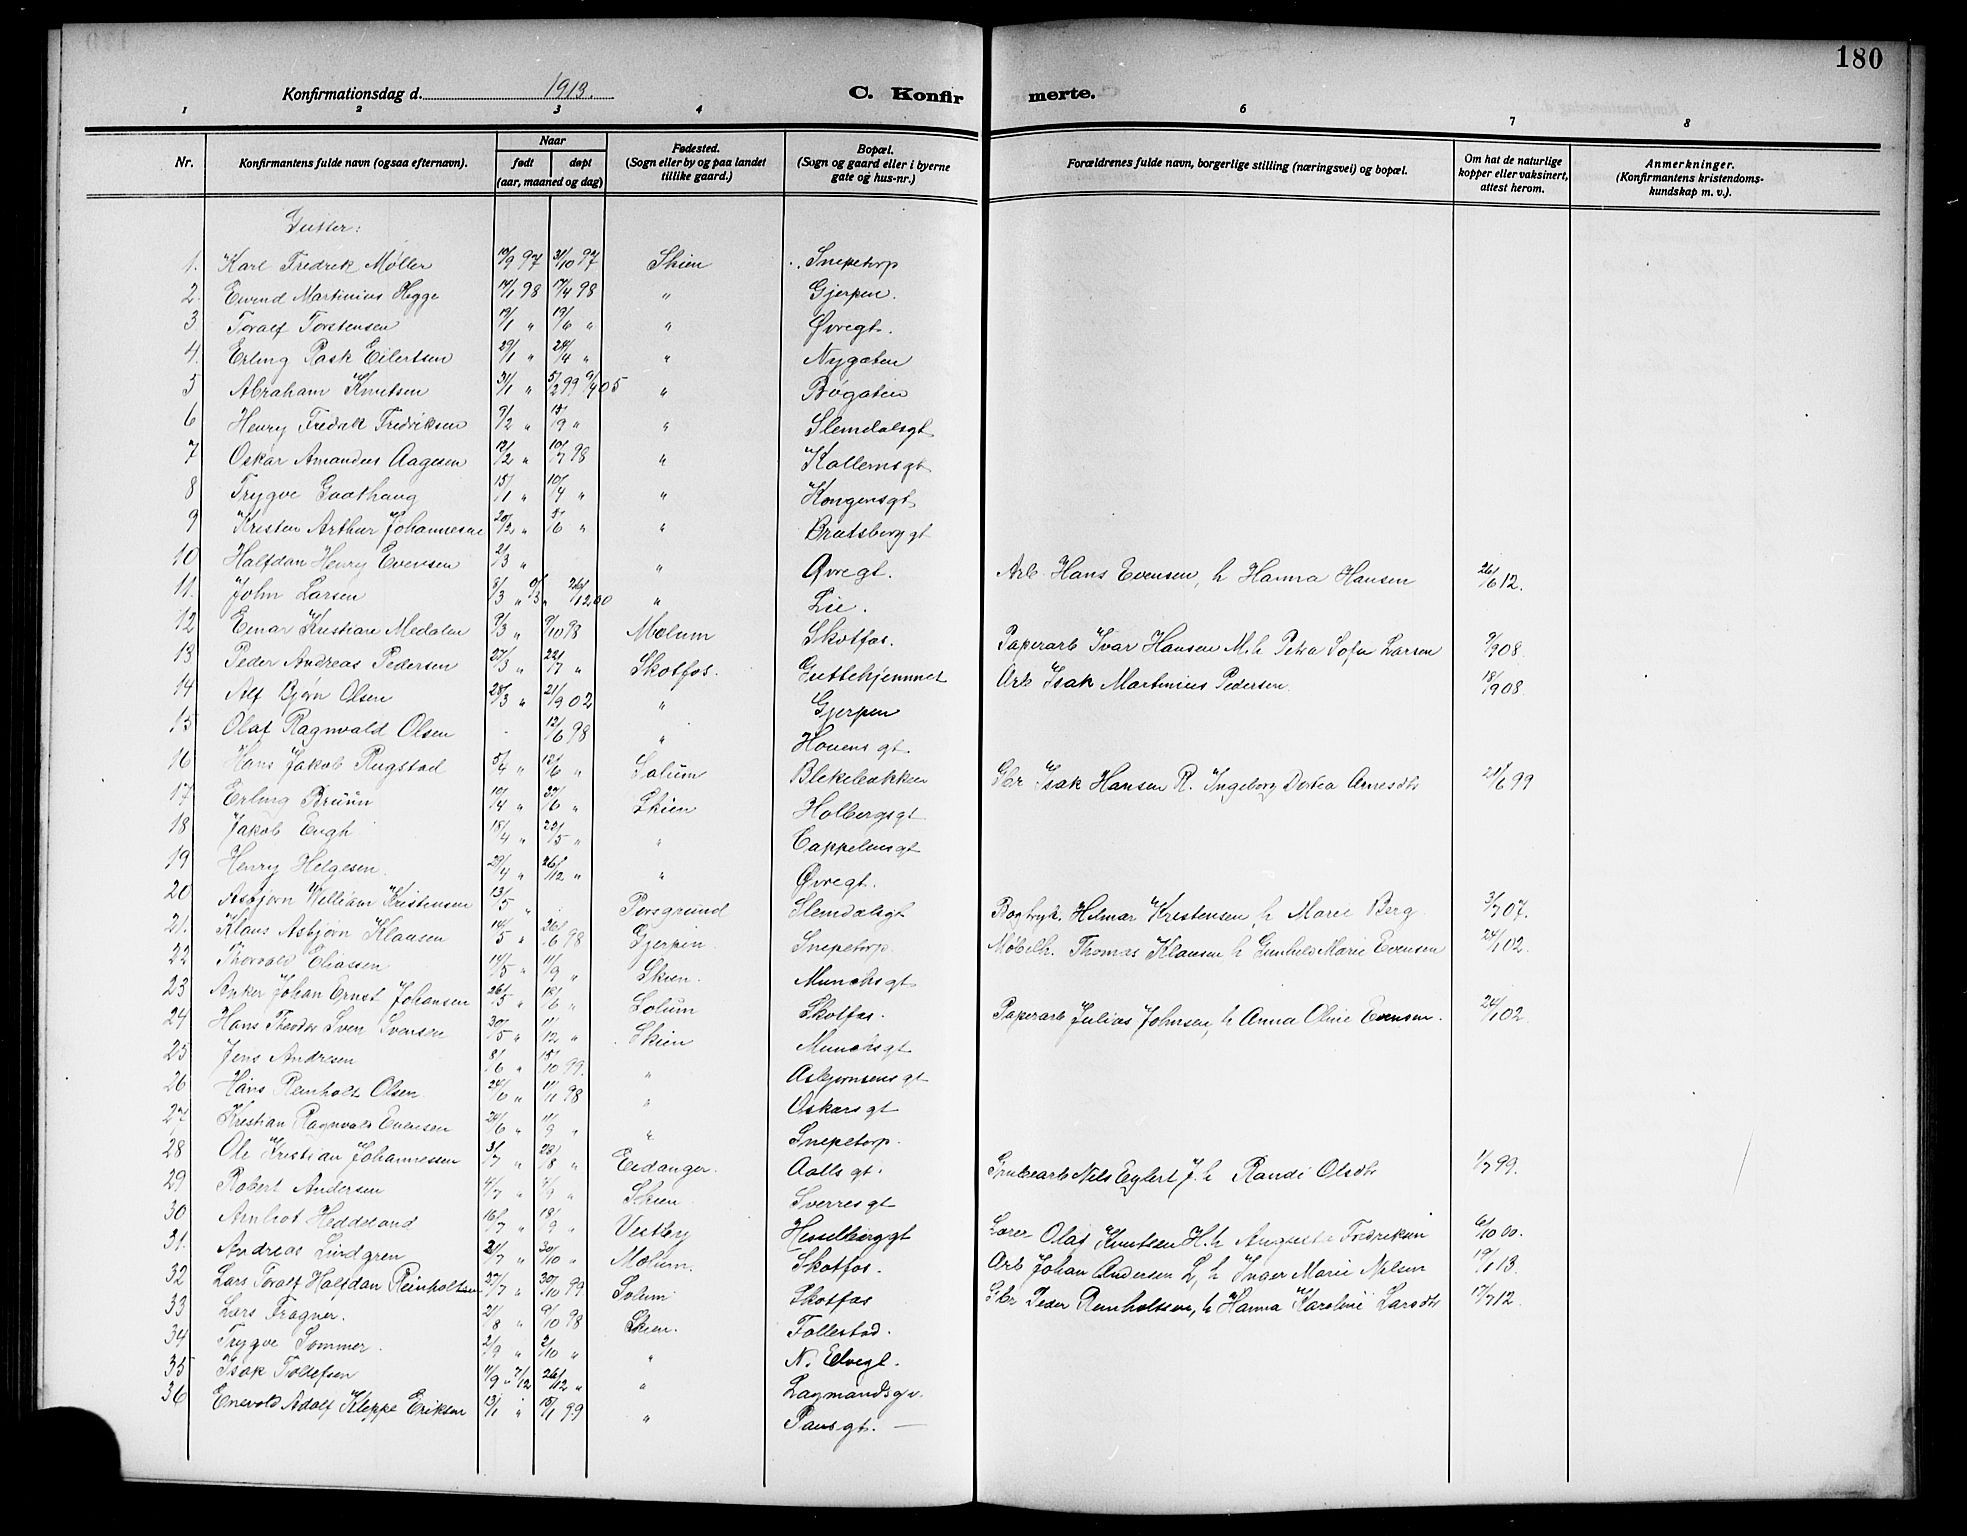 180
Konfirmationsdag d. 1913. C. Konfirmerte.
1 2 3 4 6 7 8
Nr. Konfirmantens fulde navn (ogsaa efternavn). Naar født døpt (aar, maaned og dag) Fødested. (Sogn eller by og paa landet tillike gaard.) Bopæl. (Sogn og gaard eller i byerne gate og hus-nr.) Forældrenes fulde navn, borgerlige stilling (næringsvei) og bopæl. Om hat de naturlige kopper eller vaksinert, attest herom. Anmerkninger. (Konfirmantens kristendoms-kundskap m. v.).
Gutter:
1. Karl Fredrik Møller 19/9 97 31/10 97 Skien Snipetorp
2. Eivind Martinius Hegge 14/1 98 17/4 98 " Gjerpen.
3 Toralf Torstensen 19/1 " 19/6 " " Øvregt.
4. Erling Rask Eilertsen 29/1 " 24/4 " " Nygaten
5 Abraham Knutsen 31/1 " 5/2 99 9/4 05 " Bøgaten
6 Henry Fredrik Fredriksen 9/2 " 15/9 " " Slemdalsgt
7 Oskar Amandus Aagesen 12/2 " 10/7 98 " Kollemsgt
8 Trygve Gaathaug 15/1 " 10/4 " " Kongensgt
9 Kristen Arthur Johannesen 20/2 " 5/6 " " Bratsberggt
10 Halfdan Henry Evensen 2/3 " " Øvregt. Arb. Hans Evensen, h Hanna Hansen 26/6 12.
11. John Larsen 8/3 " 26/12 00 " Lie.
12 Einar Kristian Medalen 9/3 " 9/10 98 Mælum Skotfos. Papirarb Ivar Hansen M. h Petra Sofie Larsen 9/9 08.
13 Peder Andreas Pedersen 27/3 " 22/7 " Skotfos. Guttehjemmet Arb Isak Martinius Pedersen. 18/9 08.
14 Alf Bjørn Olsen 28/3 " 21/9 02 " Gjerpen
15 Olaf Ragnvald Olsen 12/6 98 " Houens gt.
16 Hans Jakob Rugstad 5/4 " 12/6 " Solum Blekebakken Gbr Isak Hansen R. Ingeborg Dortea Arnesdtr 21/6 99
17 Erling Bruun 10/4 " 30/6 " Skien Holbergsgt
18 Jakob Engh 18/4 " 22/5 " " Cappelensgt
19 Henry Helgesen. 29/4 " 26/12 " " Øvregt.
20 Asbjørn William Kristensen 13/5 " Porsgrund Slemdalsgt Bogtryk. Hilmar Kristensen, h Marie Berg 3/7 07.
21. Klaus Asbjørn Klausen 14/5 " 26/6 98 Gjerpen. Snipetorp. Møbelh. Thomas Klausen h Gunhild Marie Evensen 24/1 02.
22 Thorvald Eliassen 14/5 " 11/9 " Skien. Munchsgt
23 Anker Johan Ernst Johansen 26/5 " 12/6 " Solum Skotfos. Papirarb Julius Johnsen, h Anna Oline Evensen. 24/1 02.
24 Hans Theodor Sven Svensen 30/5 " 11/12 " Skien Munchsgt
25 Jens Andresen 8/6 " 15/10 99. " Asbjørnsens gt
26 Hans Reinholt Olsen 24/6 " 11/11 98 " Oskars gt
27 Kristian Ragnvald Evensen 24/6 " 11/9 " " Snipetorp.
28 Ole Kristian Johannessen 3/7 " 28/8 " Eidanger. Aalls gt. Grubearb Nils Eglert J. h Randi Olsdtr 1/7 99.
29 Robert Andersen 4/7 " Skien. Sverresgt
30 Arnliot Heddeland 16/7 " 18/9 " Vestby Hesselberggt Lærer Olaf Knutsen H. h Augusta Fredriksen 6/10 00.
31. Andreas Lindgren 21/7 " 30/10 " Mælum. Skotfos. Arb Johan Andersen L, h Inger Marie Nilsen 19/1 13.
32 Lars Toralf Halfdan Reinholtsen 27/7 " 30/10 99 Solum Skotfos Gbr Peder Reinholtsen, h Hanna Karoline Larsdtr 17/7 12.
33 Lars Fragner. 21/8 " 9/10 98 Skien. Follestad.
34 Trygve Sommer. 2/9 " 2/10 " " N. Elvegt.
35 Isak Tollefsen 11/9 " 7/12 26/12 " " Lagmandsgt.
36 Enevold Adolf Kleppe Eriksen 13/1 " 15/1 99 " Pausgt.